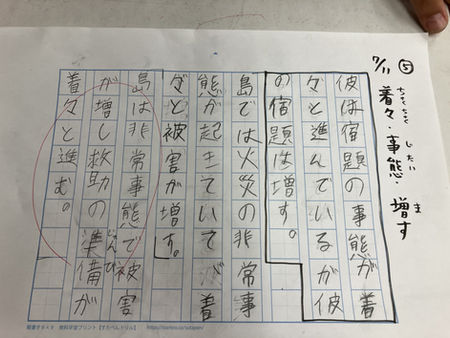 ⑤
7/11
ちゃくちゃく じたい ま
着々・事態・増す
彼は宿題の事態が着
々と進んでいるが彼
の宿題は増す。
島では火災の非常事
態が起きていて着
々と被害が増す。
島は非常事態で被害
じゅんび
が増し救助の準備が
着々と進む。
無料学習プリント【すたぺんドリル】